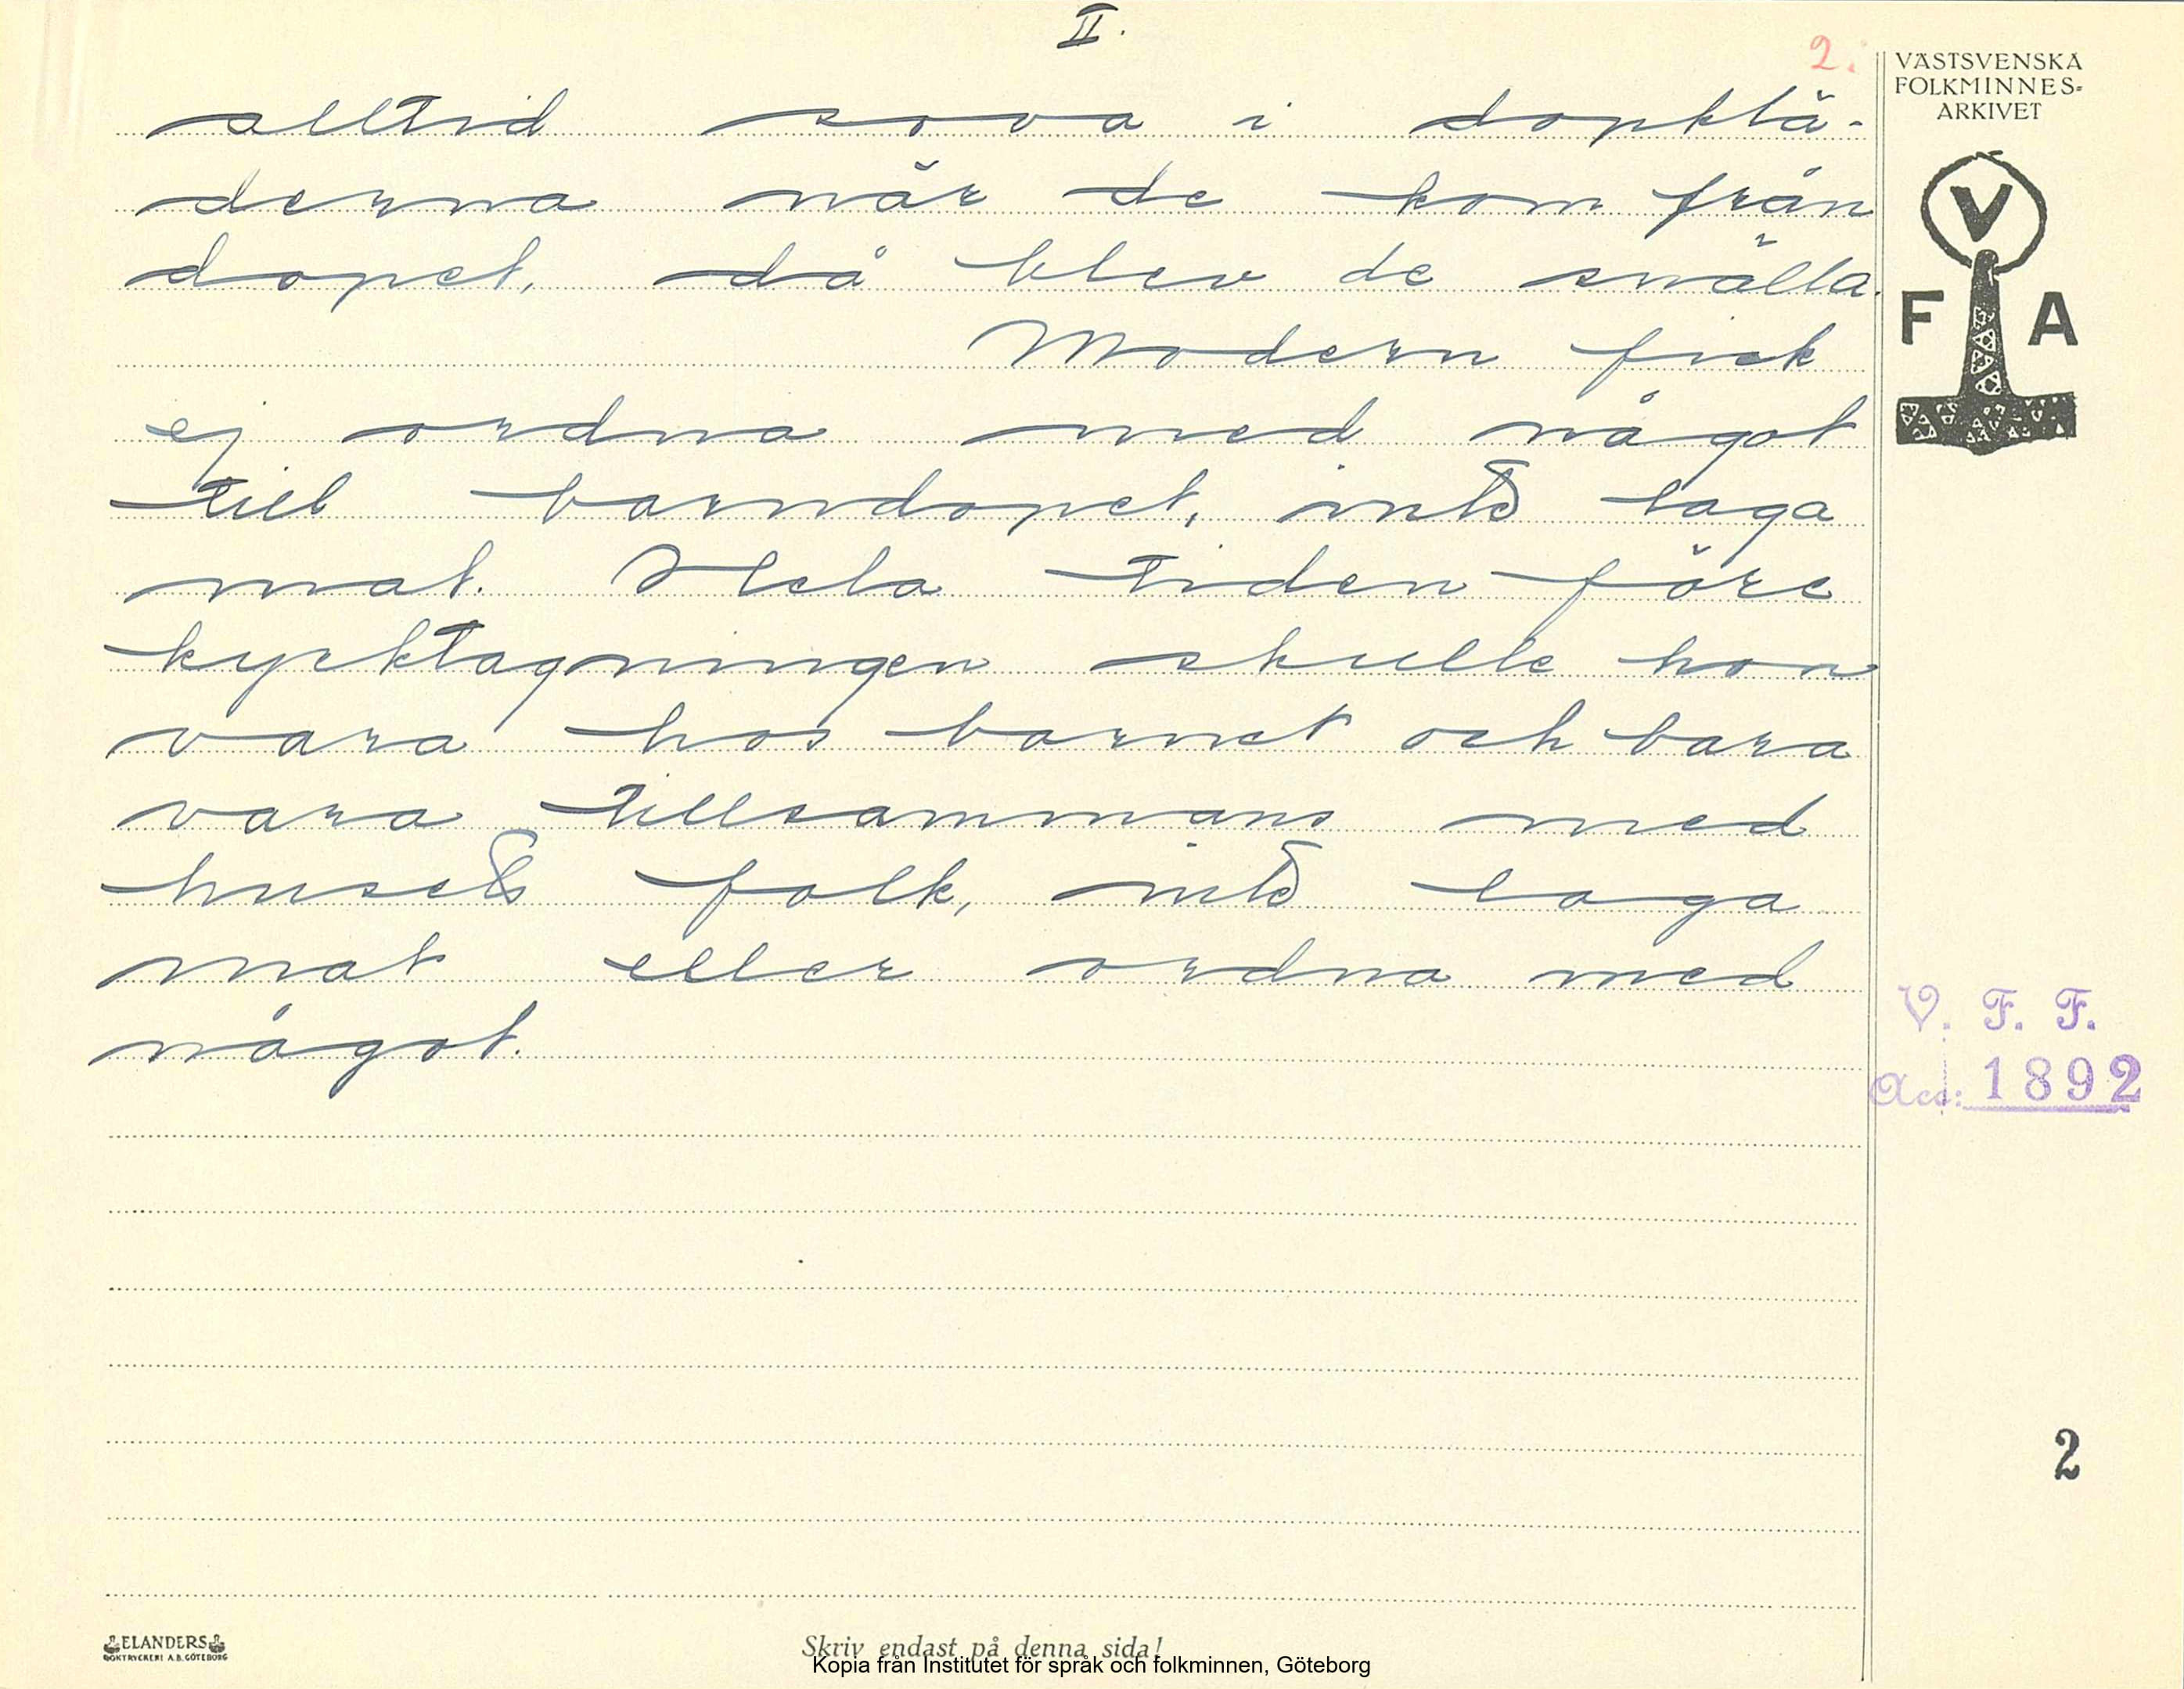 II.
2.
alltid sova i dopklä-
derna när de kom från
dopet, då blev de snälla.
Modern fick
ej ordna med något
till barndopet, inte laga
mat. Hela tiden före
kyrktagningen skulle hon
vara hos barnet och bara
vara tillsammans med
husets folk, inte laga
mat eller ordna med
något.
VÄSTSVENSKA
FOLKMINNES-
ARKIVET
V
F A
V. F. F.
Acc: 1892
2
ELANDERS
BOKTRYCKERI A.B. GÖTEBORG
Skriv endast på denna sida!
Kopia från Institutet för språk och folkminnen, Göteborg